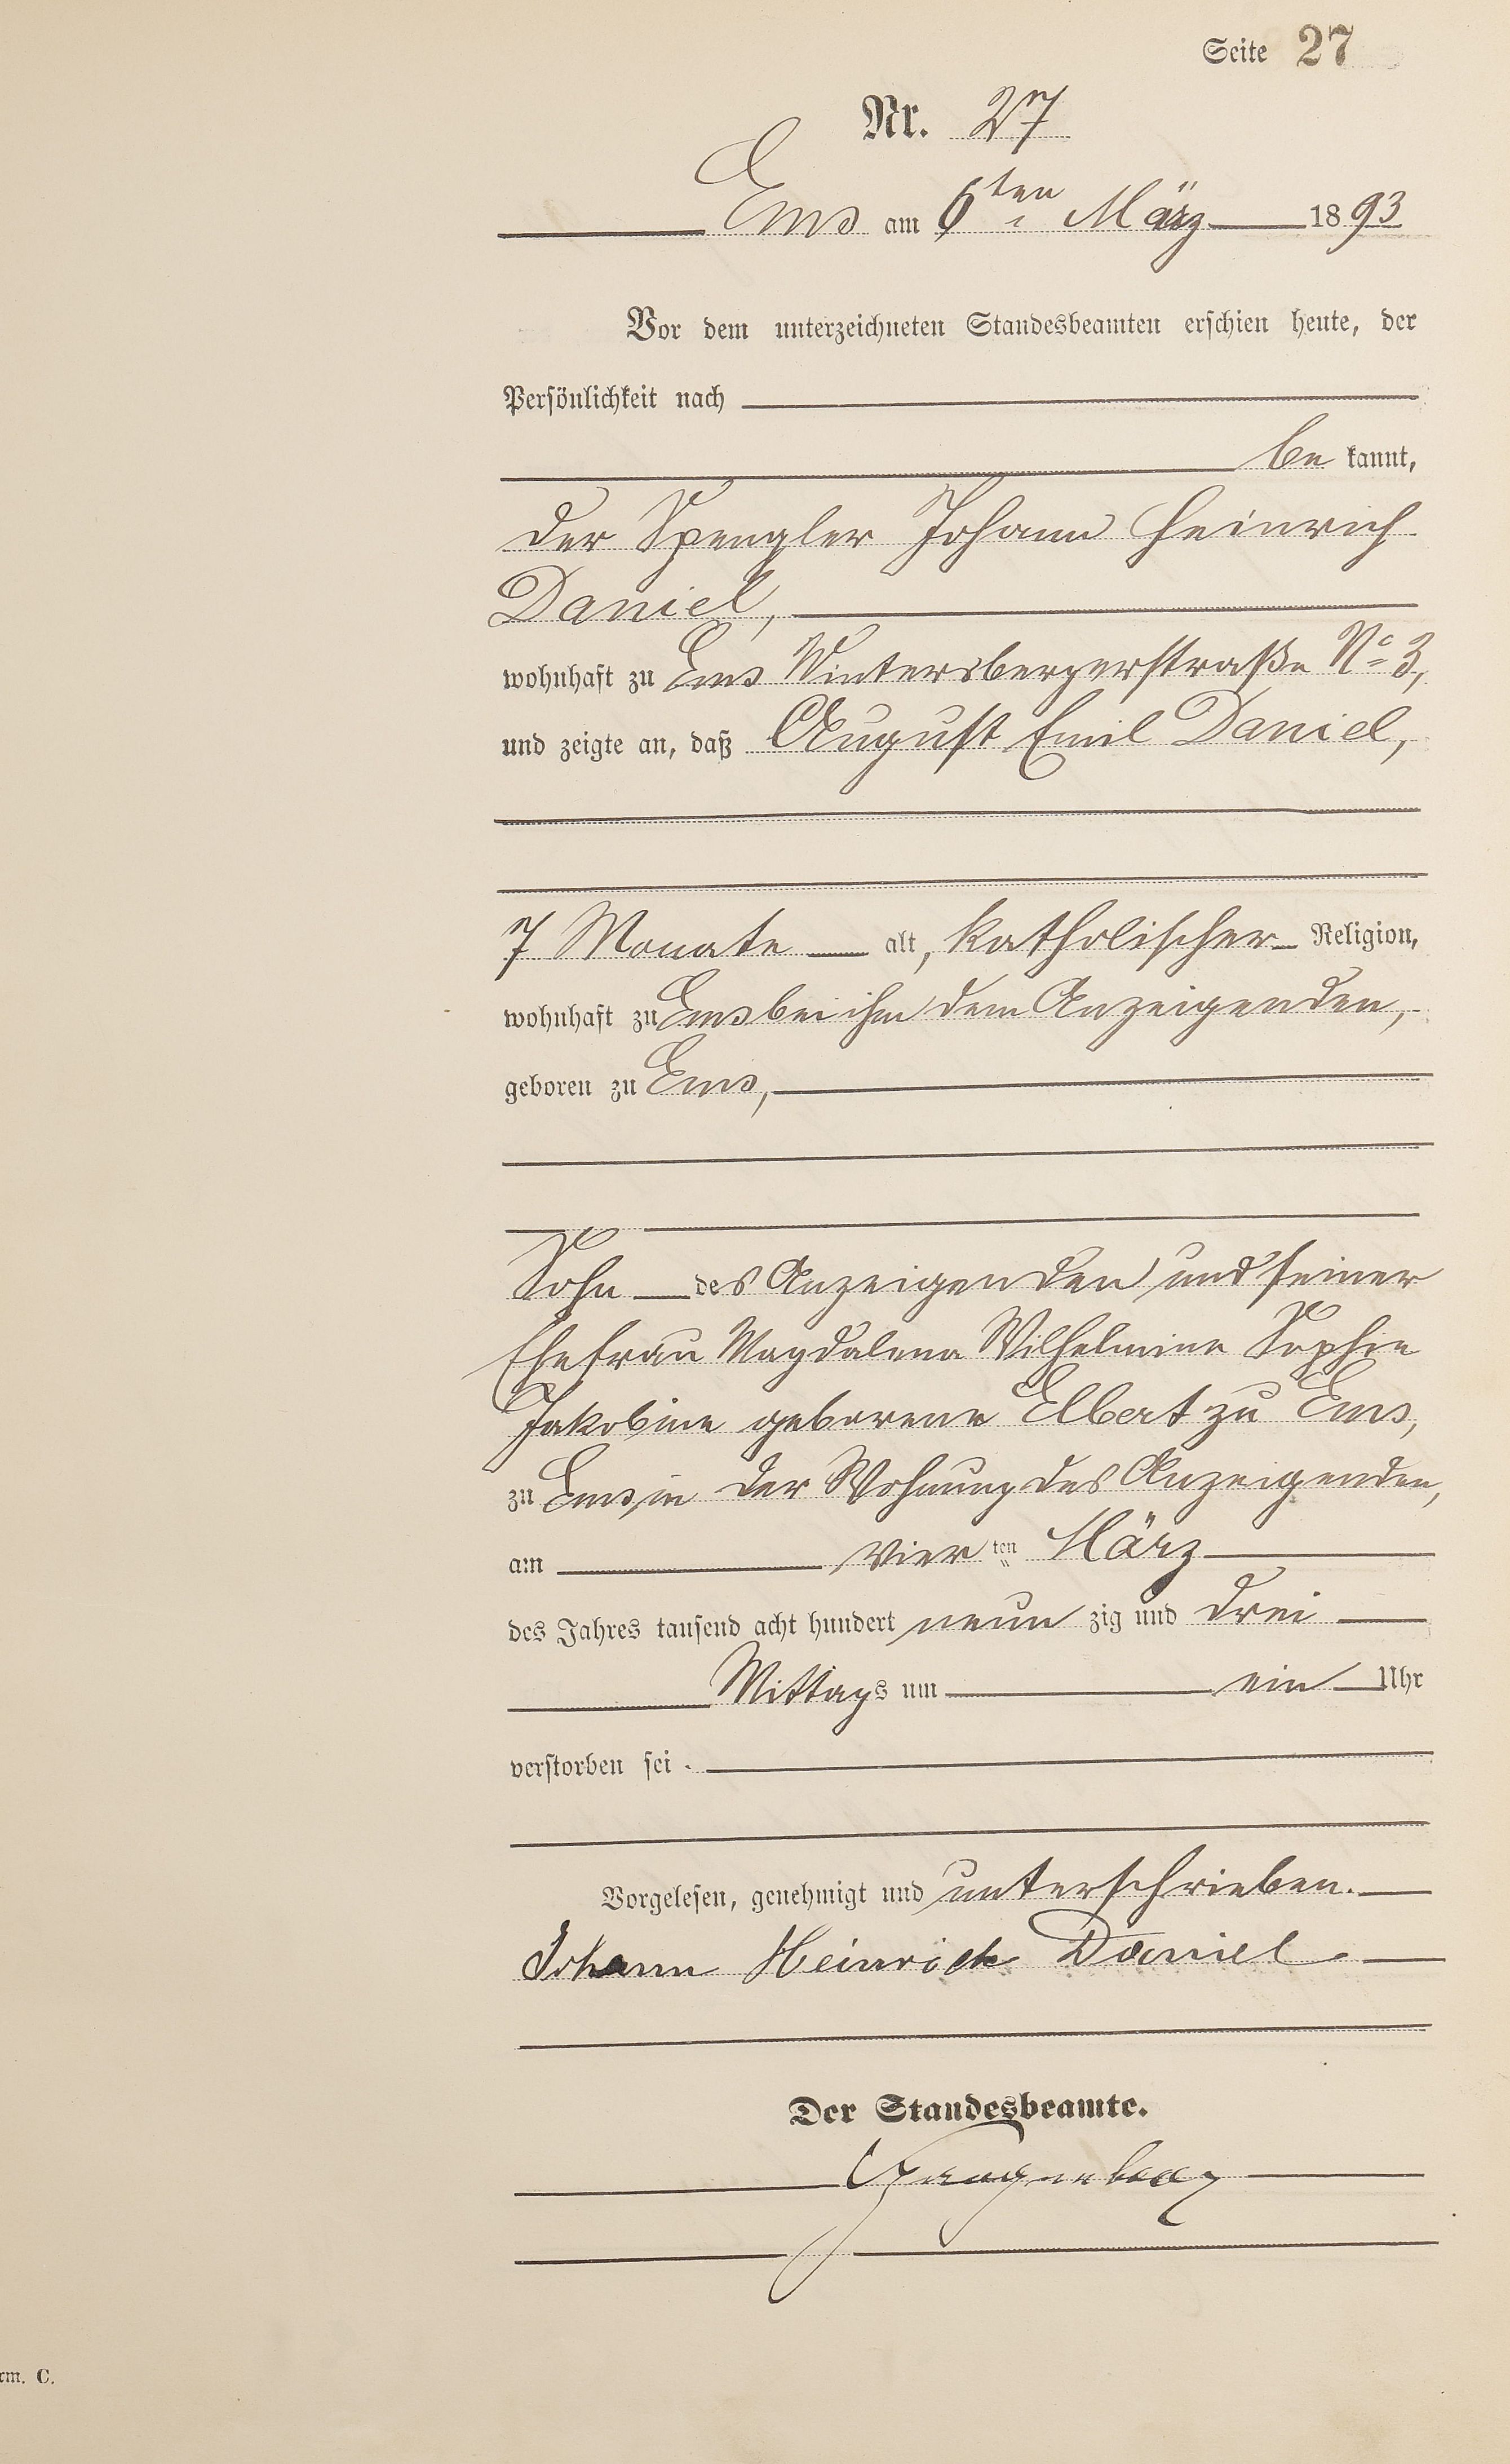 Seite 27
Nr. 27
Ems am 6ten März 1893
Vor dem unterzeichneten Standesbeamten erschien heute, der
Persönlichkeit nach
be kannt,
der Spengler Johann Heinrich
Daniel,
wohnhaft zu Ems Wintersbergerstraße No 3,
und zeigte an, daß August Emil Daniel,
7 Monate alt, katholischer Religion,
wohnhaft zu Ems bei ihm dem Anzeigenden,
geboren zu Ems,
Sohn des Anzeigenden und seiner
Ehefrau Magdalena Wilhelmine Sophie
Jakobine geborene Elbert zu Ems,
zu Ems, in der Wohnung des Anzeigenden,
am vier ten März
des Jahres tausend acht hundert neun zig und drei
Mittags um ein Uhr
verstorben sei.
Vorgelesen, genehmigt und unterschrieben.
Johann Heinrich Daniel
Der Standesbeamte.
rm. C.